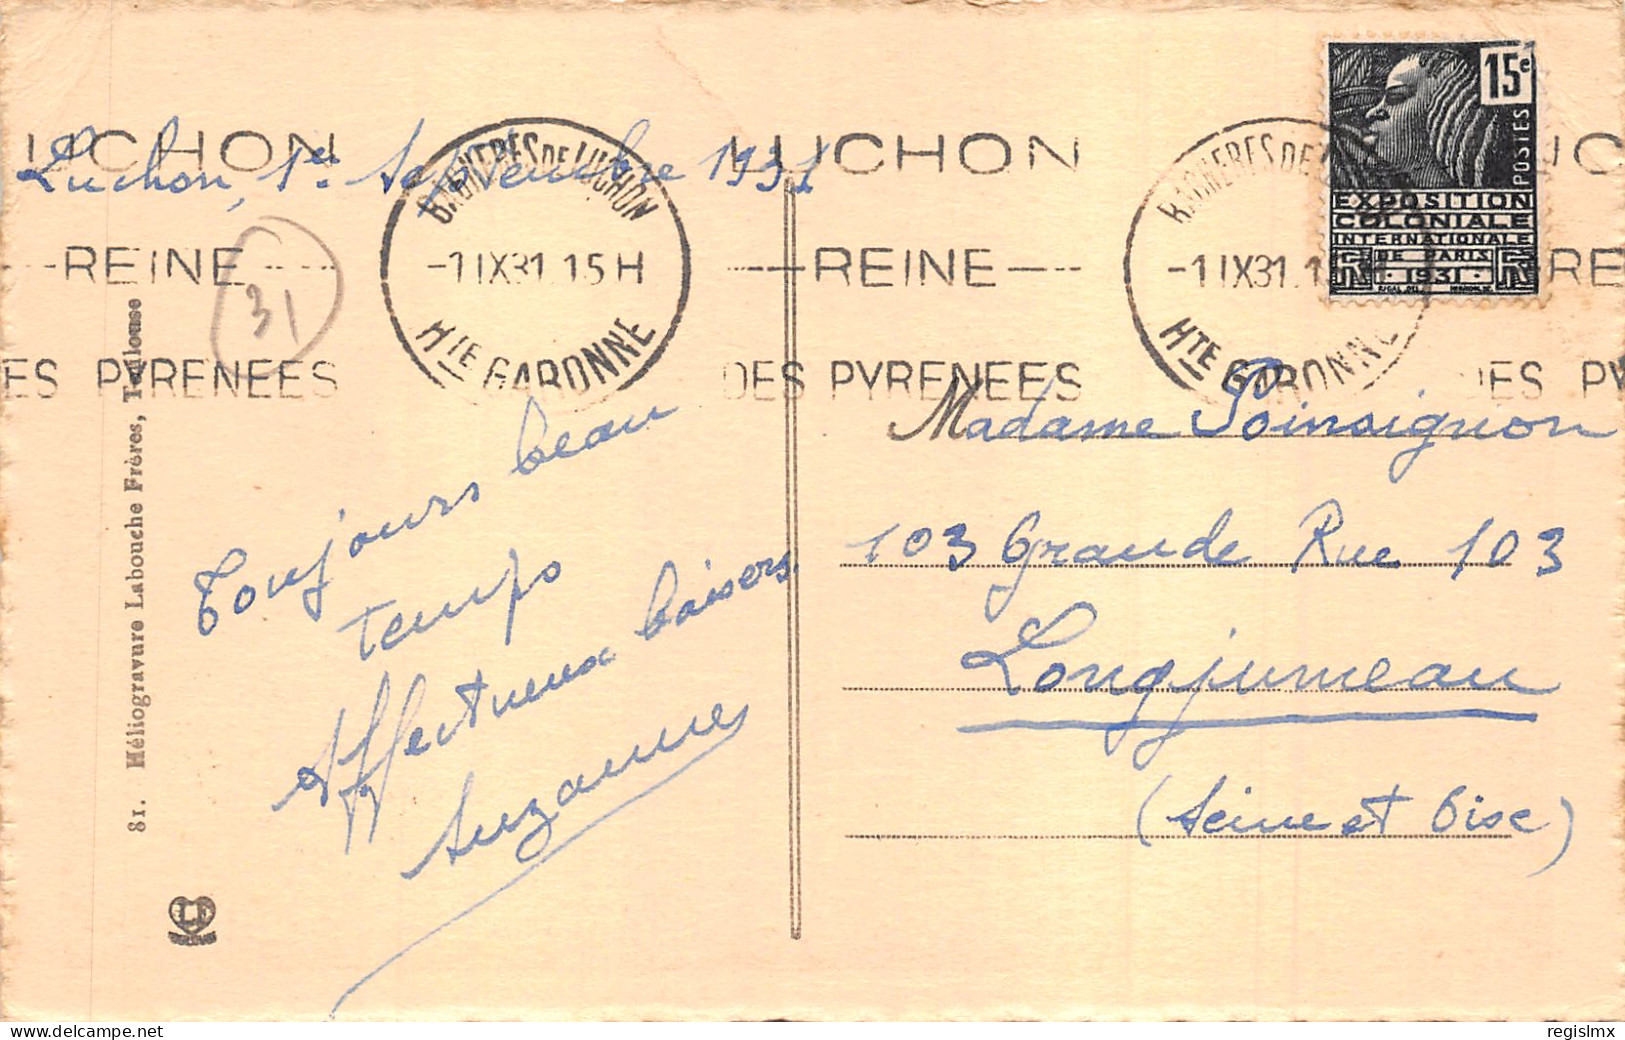 LUCHON
REINE
DES PYRENEES
BAGNERES DE LUCHON
-1 IX 31. 15 H
HTE GARONNE
LUCHON
REINE
DES PYRENEES
BAGNERES DE
-1 IX 31. 1
HTE GARONNE
UC
RE
ES PY
15c
POSTES
EXPOSITION
COLONIALE
INTERNATIONALE
DE PARIS
·1931·
Luchon, 1er Septembre 1931
31
Toujours beau
temps
Affectueux baisers
Suzanne
Madame Poinsignon
103 Grande Rue 103
Longjumeau
(Seine et Oise)
81. Héliogravure Labouche Frères, Toulouse
LF
delcampe.net
regislmx